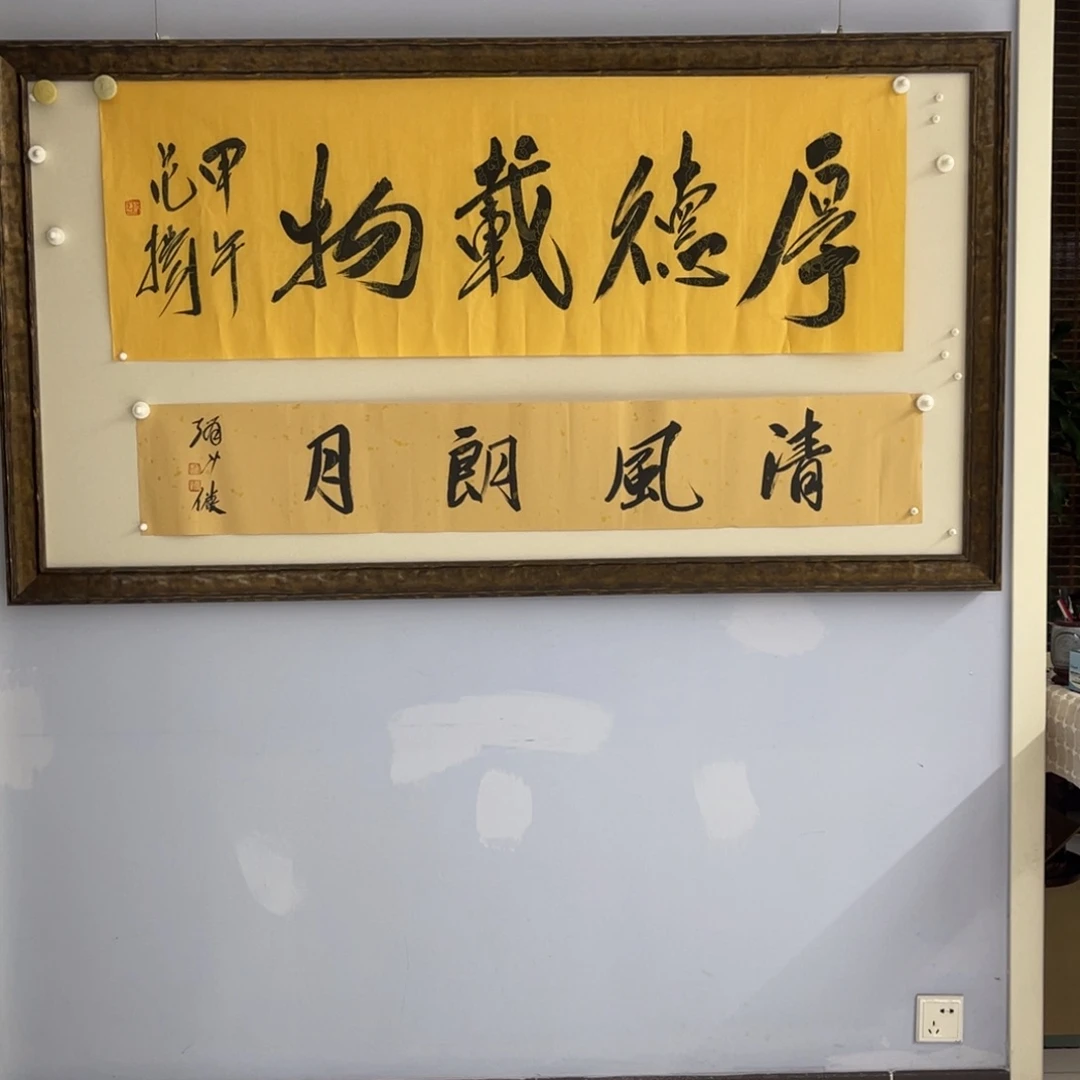 厚德載物
甲午
清風朗月